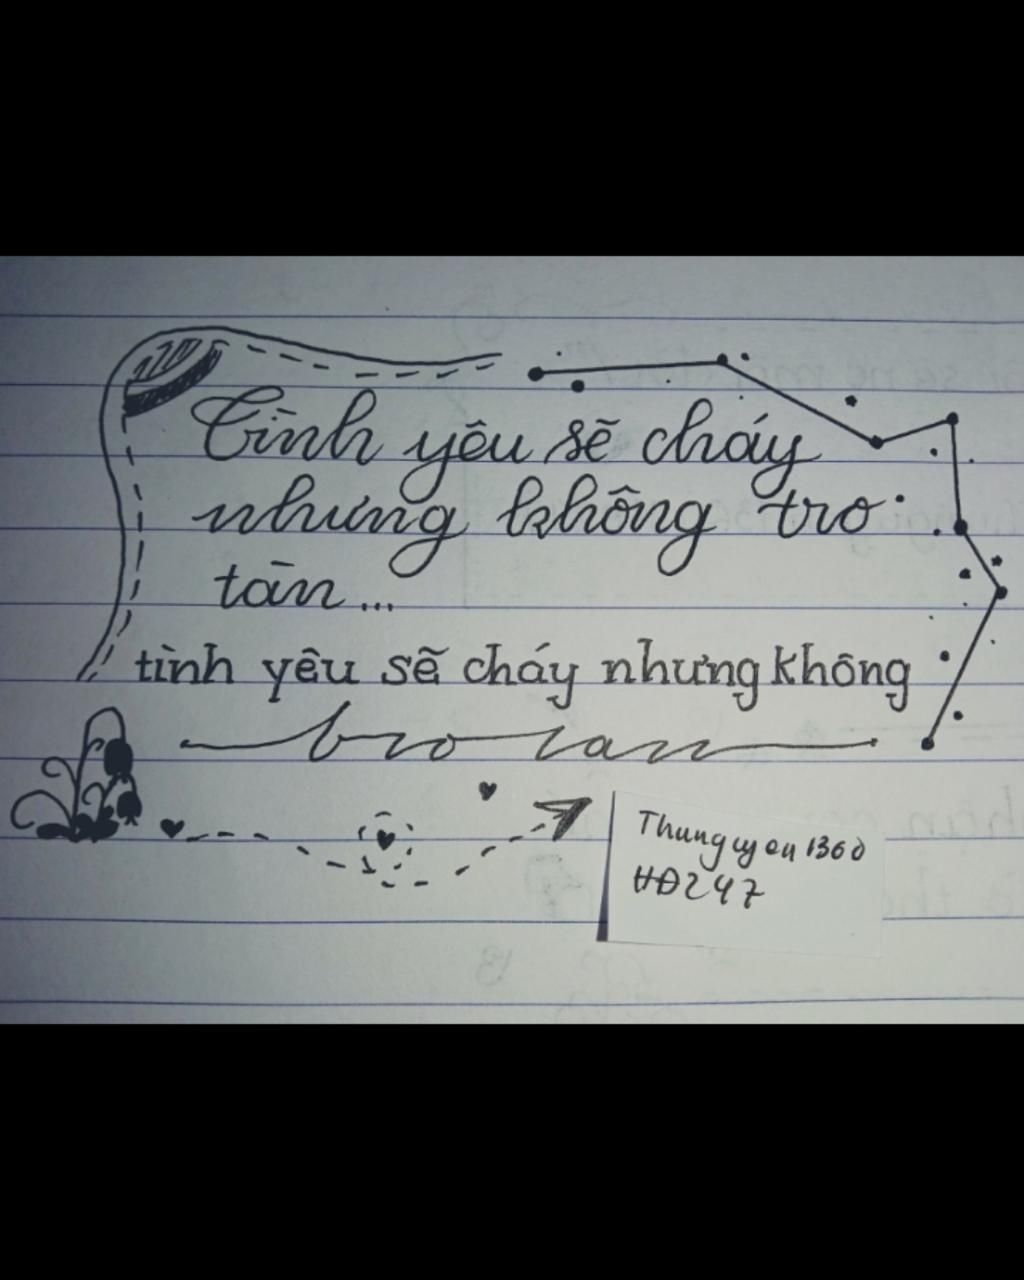 Tình yêu sẽ cháy
nhưng không tro
tàn...
tình yêu sẽ cháy nhưng không
tro tan
Thunguyen1360
HĐ247